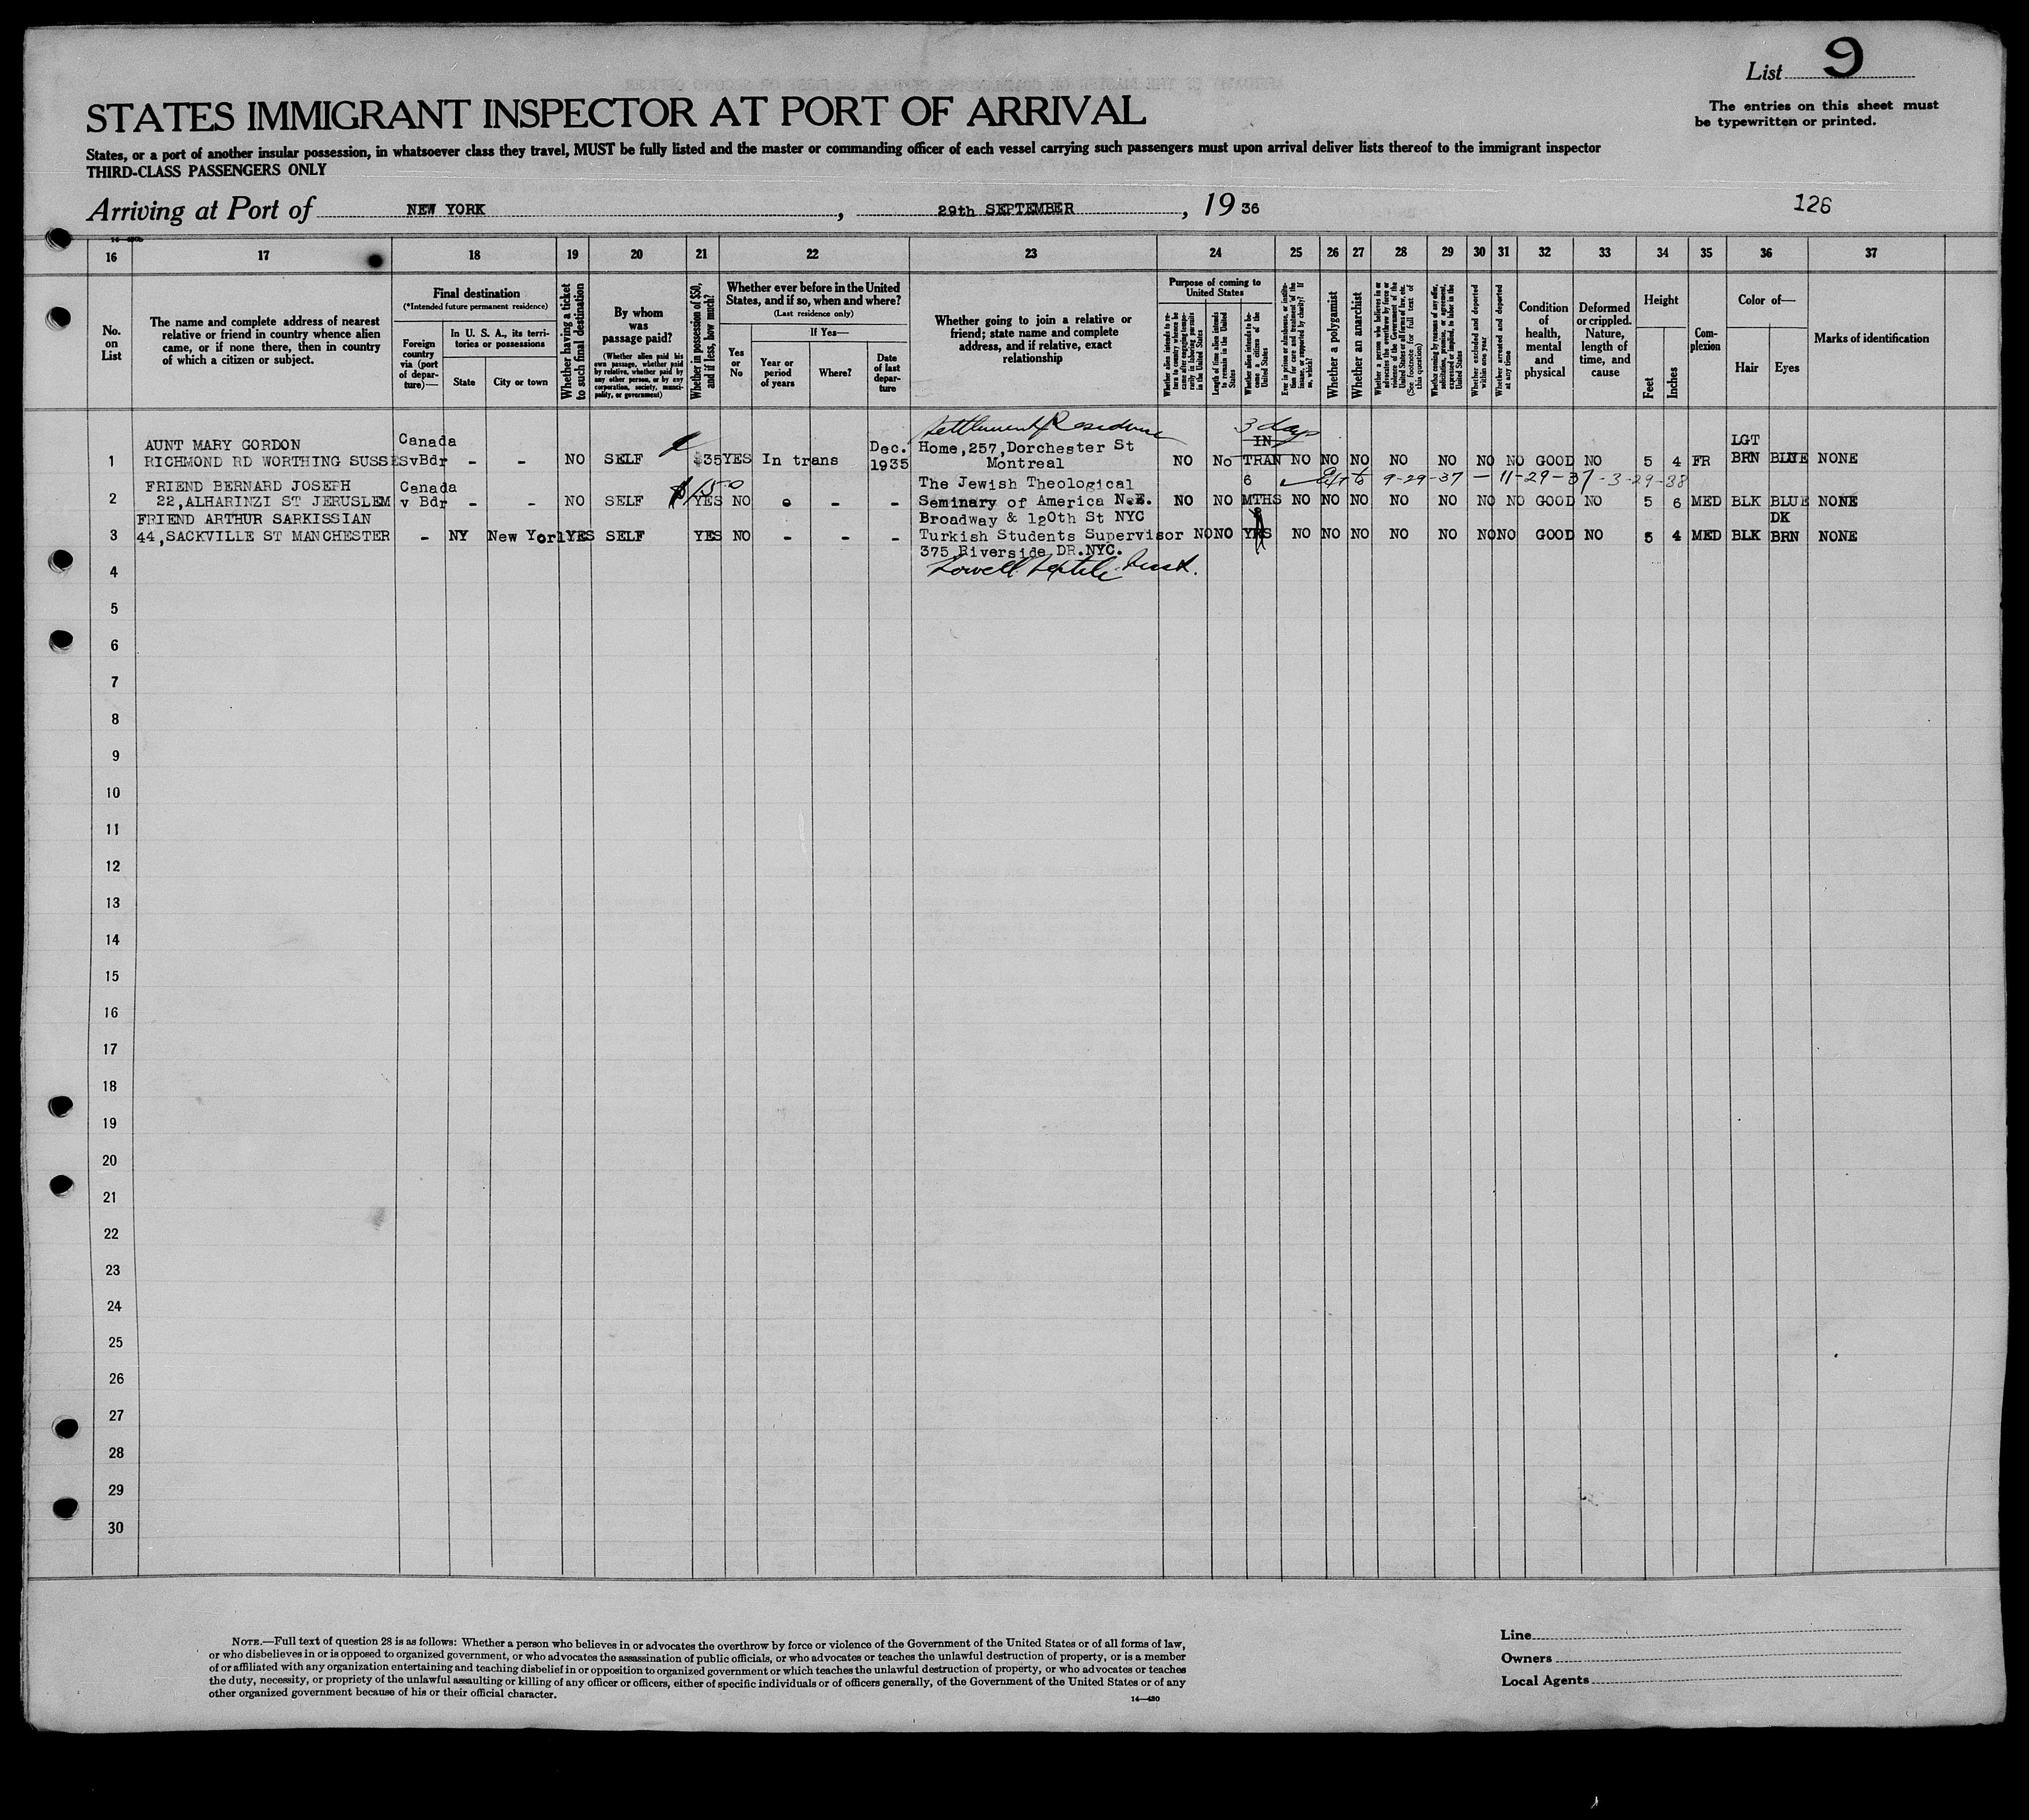 List 9
The entries on this sheet must
be typewritten or printed.
STATES IMMIGRANT INSPECTOR AT PORT OF ARRIVAL
States, or a port of another insular possession, in whatsoever class they travel, MUST be fully listed and the master or commanding officer of each vessel carrying such passengers must upon arrival deliver lists thereof to the immigrant inspector
THIRD-CLASS PASSENGERS ONLY
Arriving at Port of NEW YORK, 29th SEPTEMBER, 19 36
126
16 17 18 19 20 21 22 23 24 25 26 27 28 29 30 31 32 33 34 35 36 37
No. on List
The name and complete address of nearest
relative or friend in country whence alien
came, or if none there, then in country
of which a citizen or subject.
Final destination
(*Intended future permanent residence)
Foreign country via (port of departure)—
In U. S. A., its territories or possessions
State
City or town
Whether having a ticket to such final destination
By whom was passage paid?
(Whether alien paid his own passage, whether paid by relative, whether paid by any other person, or by any corporation, society, municipality, or government)
Whether in possession of $50, and if less, how much?
Whether ever before in the United
States, and if so, when and where?
(Last residence only)
Yes or No
If Yes—
Year or period of years
Where?
Date of last departure
Whether going to join a relative or
friend; state name and complete
address, and if relative, exact
relationship
Purpose of coming to United States
Whether alien intends to return to country whence he came after engaging temporarily in laboring pursuits in the United States
Length of time alien intends to remain in the United States
Whether alien intends to become a citizen of the United States
Ever in prison or almshouse, or institution for care and treatment of the insane, or supported by charity? If so, which?
Whether a polygamist
Whether an anarchist
Whether a person who believes in or advocates the overthrow by force or violence of the Government of the United States or all forms of law, etc. (See footnote for full text of this question)
Whether coming by reason of any offer, solicitation, promise, or agreement, expressed or implied, to labor in the United States
Whether excluded and deported within one year
Whether arrested and deported at any time
Condition of health, mental and physical
Deformed or crippled. Nature, length of time, and cause
Height
Feet
Inches
Complexion
Color of—
Hair
Eyes
Marks of identification
Settlement Residence
3 days
1 AUNT MARY GORDON
RICHMOND RD WORTHING SUSSEX Canada vBdr - - NO SELF $35 YES In trans Dec. 1935 Home,257,Dorchester St
Montreal NO No IN TRAN NO NO NO NO NO NO NO GOOD NO 5 4 FR LGT BRN BLUE NONE
$150
9-29-37 — 11-29-37 - 3-29-38
2 FRIEND BERNARD JOSEPH
22,ALHARINZI ST JERUSLEM Canada v Bdr - - NO SELF YES NO - - - The Jewish Theological
Seminary of America N.E.
Broadway & 120th St NYC NO NO 6 MTHS NO NO NO NO NO NO NO GOOD NO 5 6 MED BLK BLUE NONE
3 FRIEND ARTHUR SARKISSIAN
44,SACKVILLE ST MANCHESTER - NY New York YES SELF YES NO - - - Turkish Students Supervisor
375 Riverside DR.NYC. NO NO YRS NO NO NO NO NO NO NO GOOD NO 5 4 MED BLK DK BRN NONE
Lowell Textile Inst.
4
5
6
7
8
9
10
11
12
13
14
15
16
17
18
19
20
21
22
23
24
25
26
27
28
29
30
NOTE.—Full text of question 28 is as follows: Whether a person who believes in or advocates the overthrow by force or violence of the Government of the United States or of all forms of law,
or who disbelieves in or is opposed to organized government, or who advocates the assassination of public officials, or who advocates or teaches the unlawful destruction of property, or is a member
of or affiliated with any organization entertaining and teaching disbelief in or opposition to organized government or which teaches the unlawful destruction of property, or who advocates or teaches
the duty, necessity, or propriety of the unlawful assaulting or killing of any officer or officers, either of specific individuals or of officers generally, of the Government of the United States or of any
other organized government because of his or their official character.
14—430
Line
Owners
Local Agents